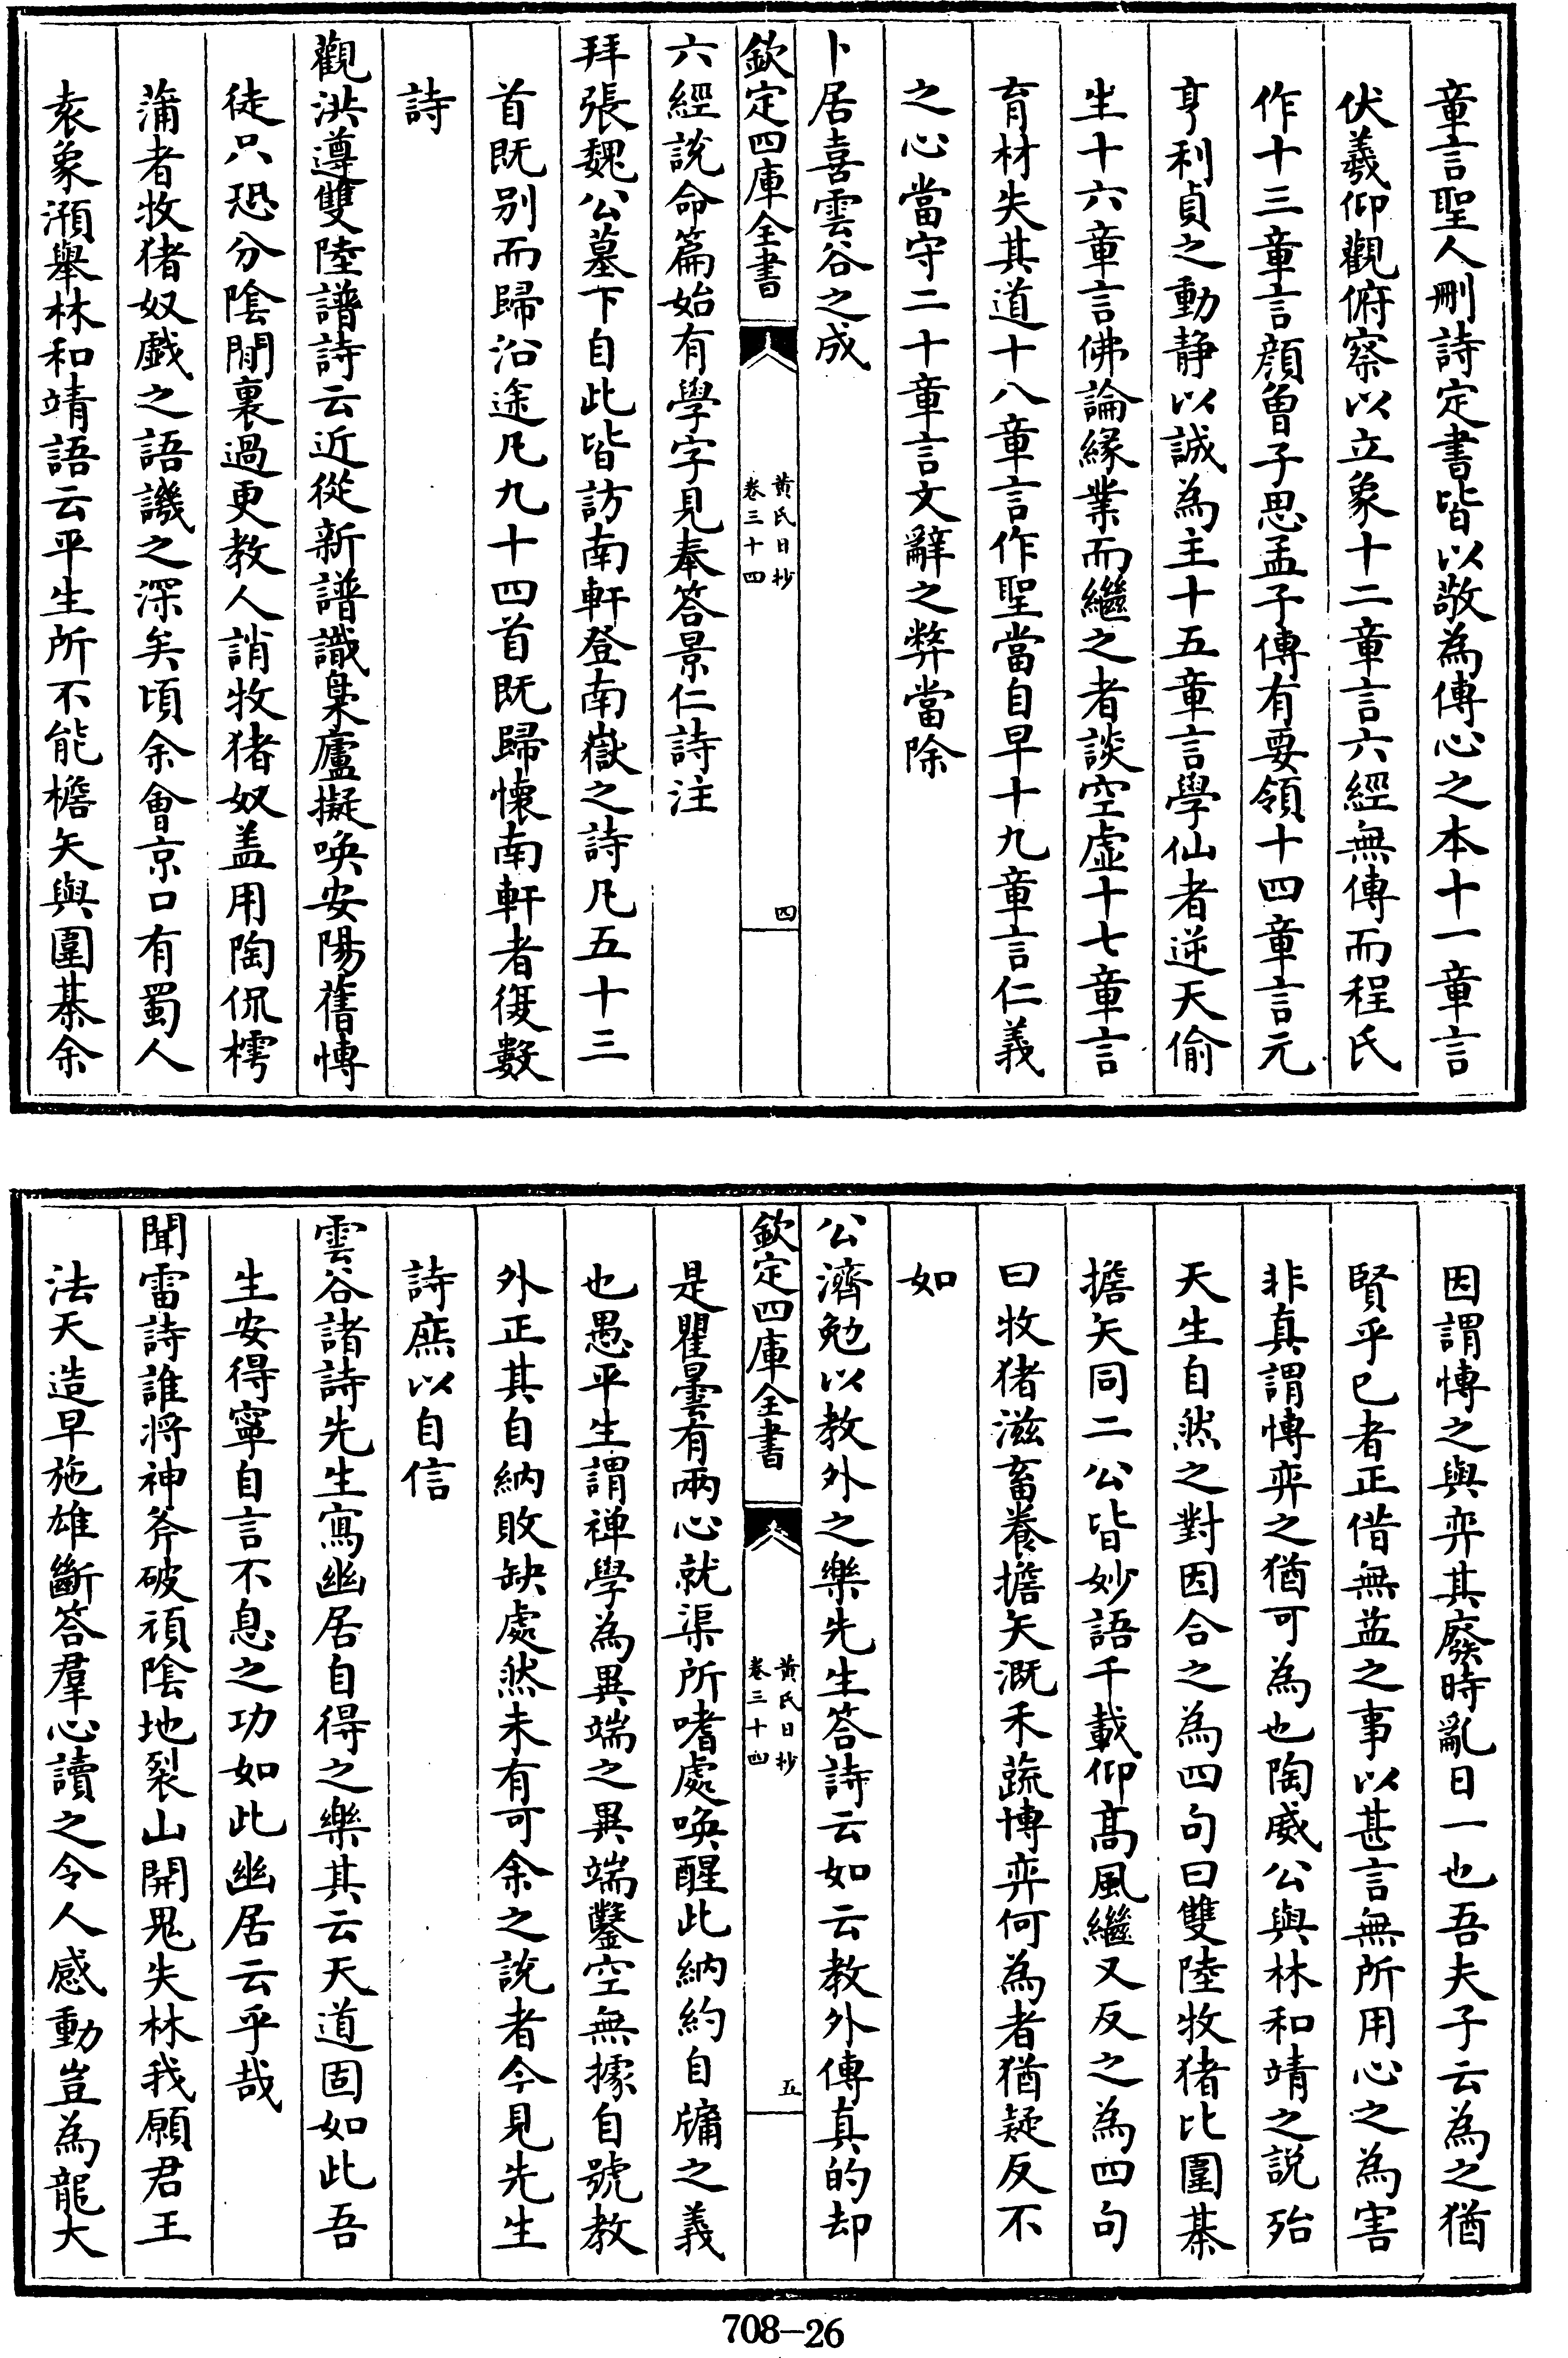 章言聖人刪詩定書皆以敬為傳心之本十一章言
伏羲仰觀俯察以立象十二章言六經無傳而程氏
作十三章言顔曾子思孟子傳有要領十四章言元
亨利貞之動静以誠為主十五章言學仙者逆天偷
生十六章言佛論緣業而繼之者談空虚十七章言
育材失其道十八章言作聖當自早十九章言仁義
之心當守二十章言文辭之弊當除
卜居喜雲谷之成
欽定四庫全書
黄氏日抄
卷三十四
四
六經說命篇始有學字見奉答景仁詩注
拜張魏公墓下自此皆訪南軒登南嶽之詩凡五十三
首既别而歸沿途凡九十四首既歸懷南軒者復數
詩
觀洪遵雙陸譜詩云近從新譜識梟盧擬喚安陽舊愽
徒只恐分隂閒裏過更教人誚牧猪奴盖用陶侃樗
蒲者牧猪奴戲之語譏之深矣頃余會京口有蜀人
袁象瀕舉林和靖語云平生所不能檐矢與圍棊余
因謂愽之與弈其廢時亂日一也吾夫子云為之猶
賢乎已者正借無益之事以甚言無所用心之為害
非真謂愽弈之猶可為也陶威公與林和靖之説殆
天生自然之對因合之為四句曰雙陸牧猪比圍棊
擔矢同二公皆妙語千載仰髙風繼又反之為四句
曰牧猪滋畜養擔矢溉禾蔬愽弈何為者猶疑反不
如
公濟勉以教外之樂先生答詩云如云教外傳真的却
欽定四庫全書
黄氏日抄
卷三十四
五
是瞿曇有兩心就渠所嗜處喚醒此納約自牖之義
也愚平生謂禅學為異端之異端鑿空無據自號教
外正其自納敗缺處然未有可余之說者今見先生
詩庶以自信
雲谷諸詩先生寫幽居自得之樂其云天道固如此吾
生安得寧自言不息之功如此幽居云乎哉
聞雷詩誰將神斧破頑隂地裂山開鬼失林我願君王
法天造早施雄斷答羣心讀之令人感動豈為龍大
708-26